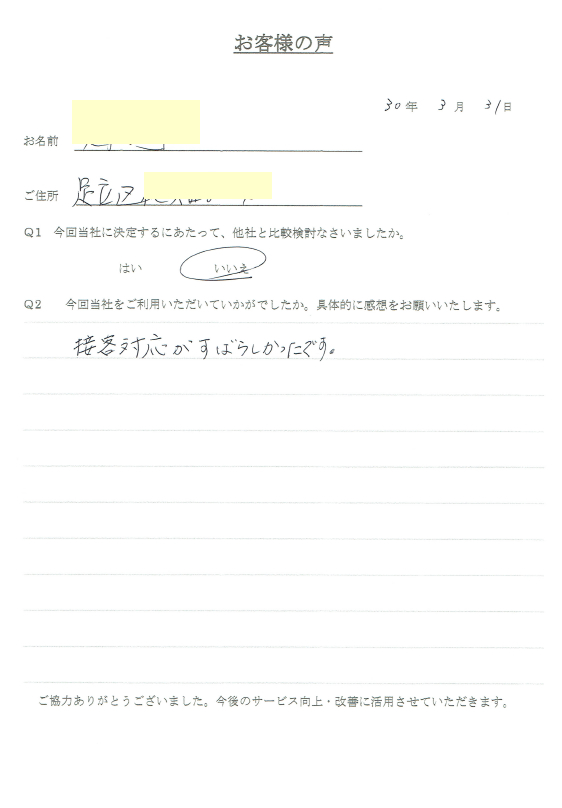 お客様の声
30年 3月 31日
お名前
ご住所 足立区
Q1 今回当社に決定するにあたって、他社と比較検討なさいましたか。
はい いいえ
Q2 今回当社をご利用いただいていかがでしたか。具体的に感想をお願いいたします。
接客対応がすばらしかったです。
ご協力ありがとうございました。今後のサービス向上・改善に活用させていただきます。